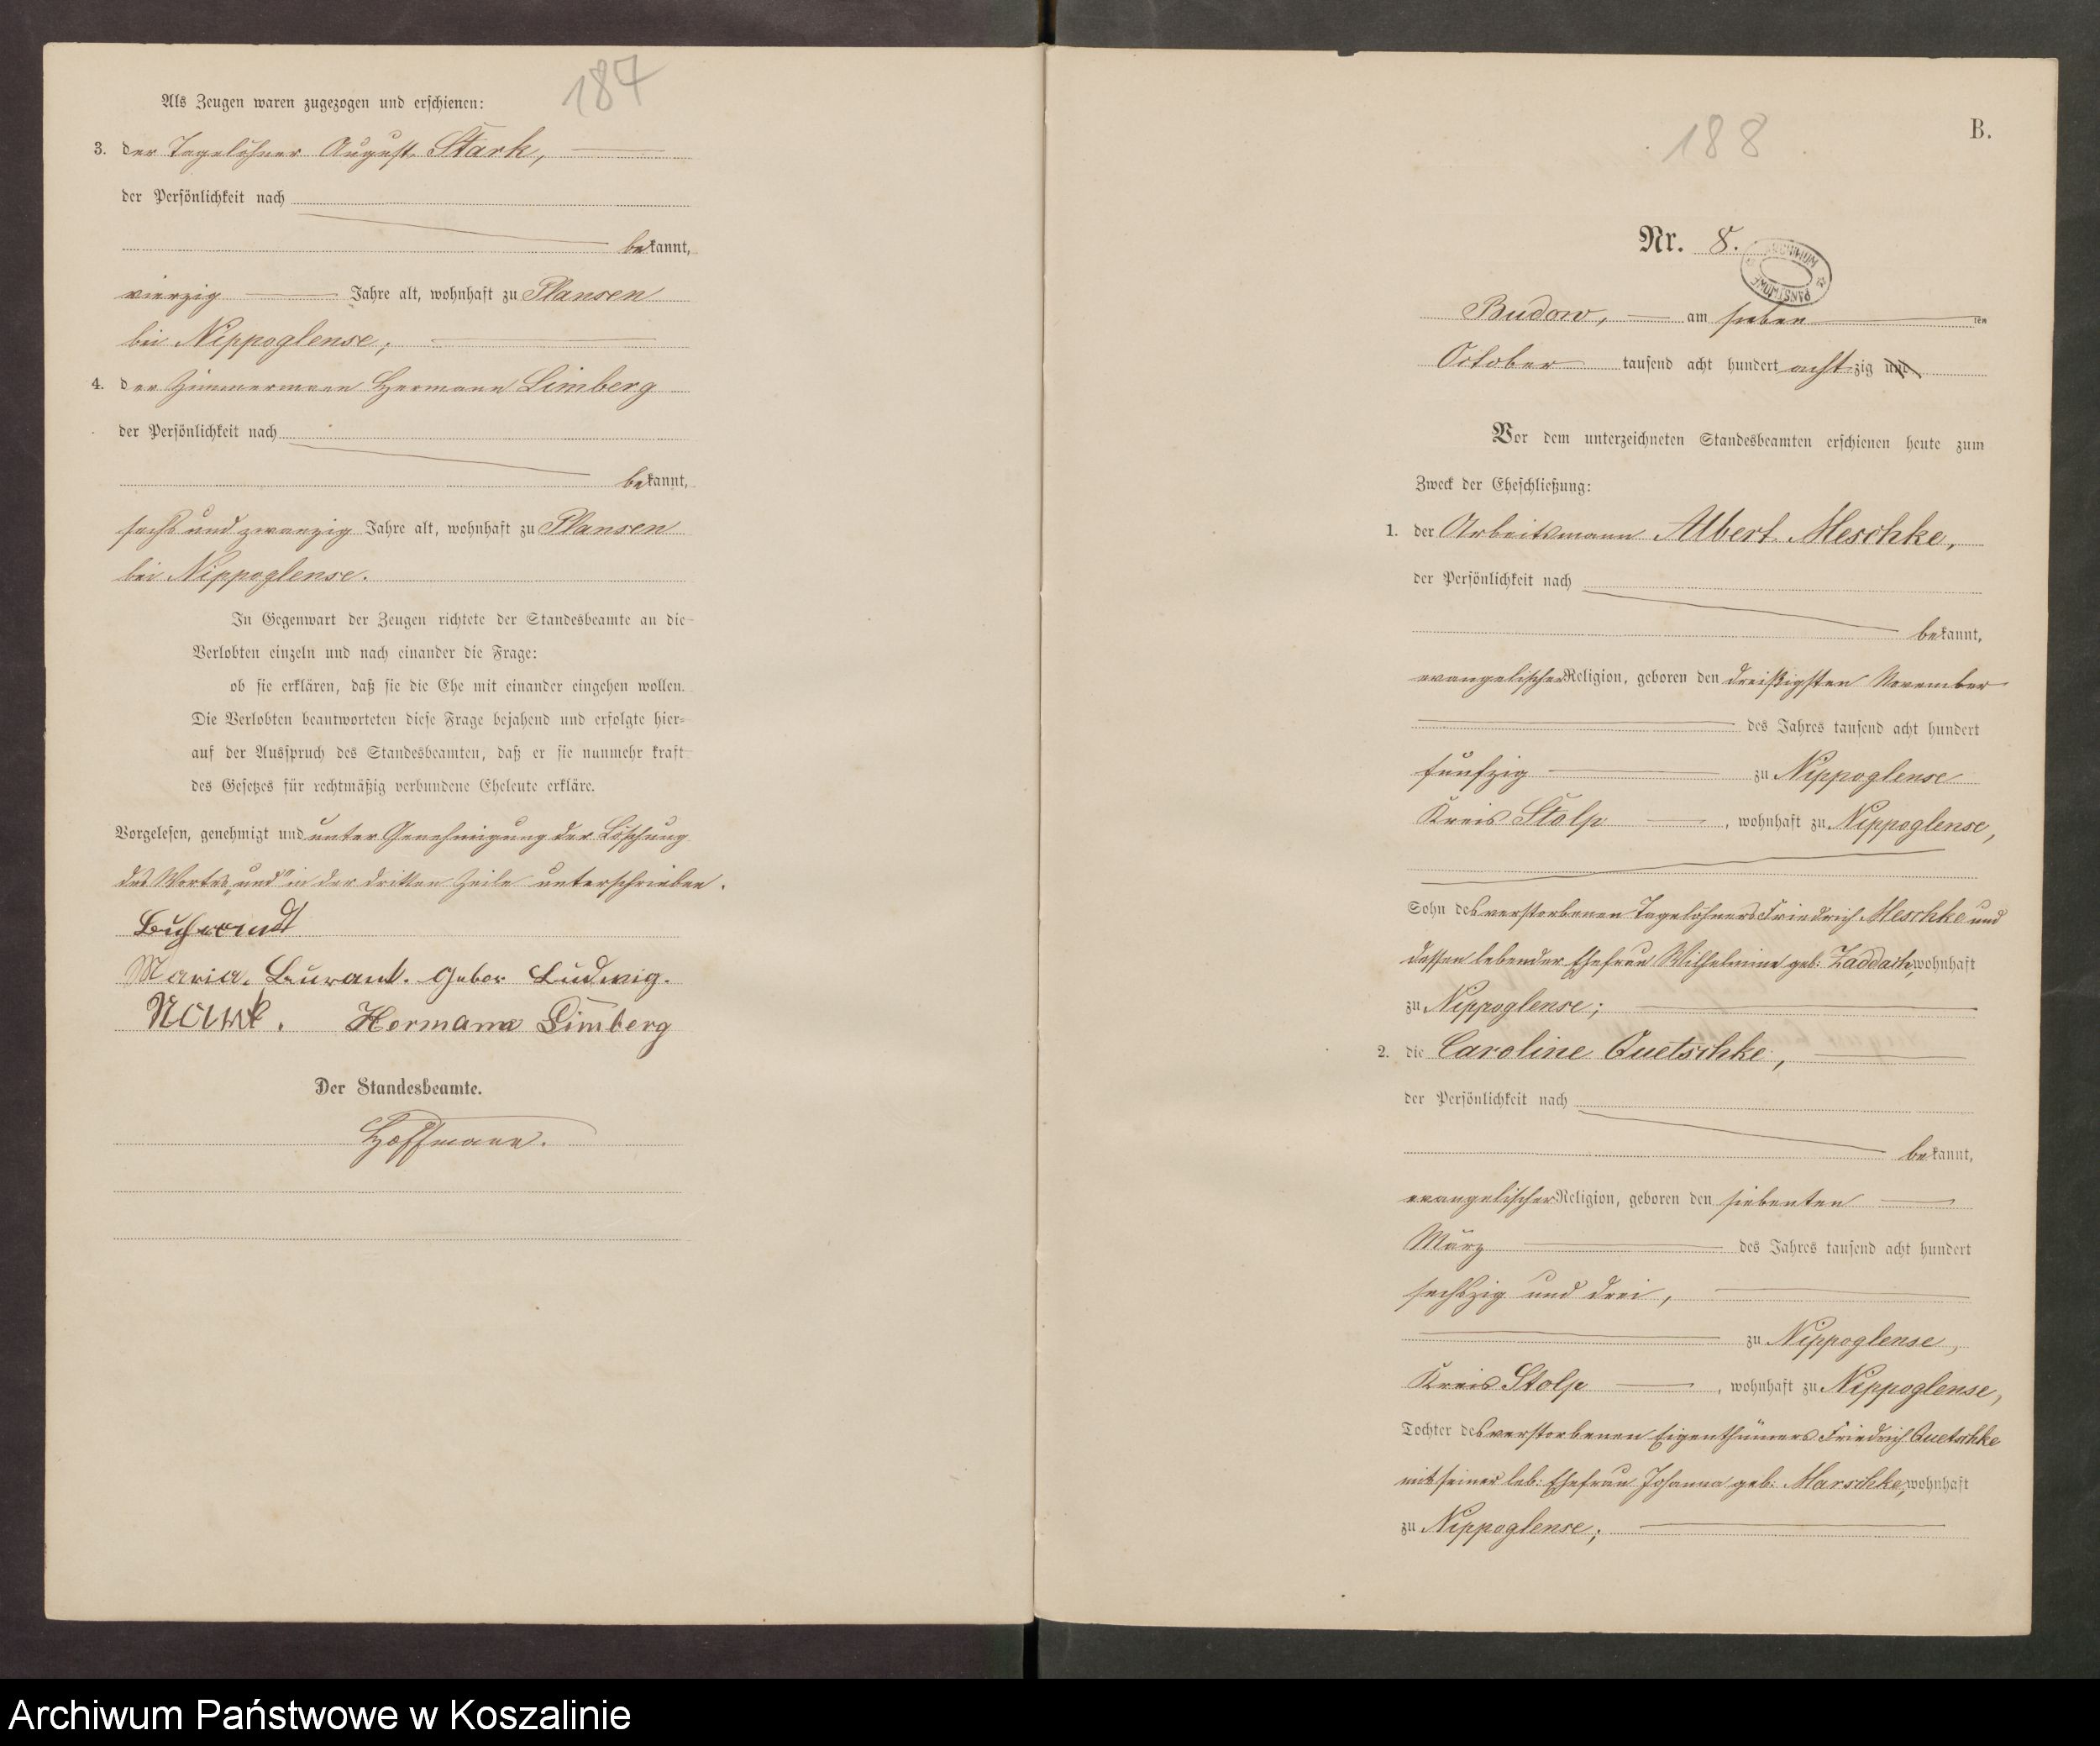 187
Als Zeugen waren zugezogen und erschienen:
3. der Tagelöhner August Stark,
der Persönlichkeit nach
bekannt,
vierzig Jahre alt, wohnhaft zu Plansen
bei Nippoglense;
4. der Zimmermann Hermann Limberg
der Persönlichkeit nach
bekannt,
sechs und zwanzig Jahre alt, wohnhaft zu Plansen
bei Nippoglense.
In Gegenwart der Zeugen richtete der Standesbeamte an die
Verlobten einzeln und nach einander die Frage:
ob sie erklären, daß sie die Ehe mit einander eingehen wollen.
Die Verlobten beantworteten diese Frage bejahend und erfolgte hier-
auf der Ausspruch des Standesbeamten, daß er sie nunmehr kraft
des Gesetzes für rechtmäßig verbundene Eheleute erkläre.
Vorgelesen, genehmigt und unter Genehmigung der Löschung
des Wortes „und" in der dritten Zeile unterschrieben.
Maria. gebor Ludwig.
Hermann Limberg
Der Standesbeamte.
Hoffmann.
188
B.
Nr. 8.
ARCHIWUM PAŃSTWOWE
Budow, am sieben ten
October tausend acht hundert achtzig und
Vor dem unterzeichneten Standesbeamten erschienen heute zum
Zweck der Eheschließung:
1. der Arbeitsmann Albert Meschke,
der Persönlichkeit nach
bekannt,
evangelischer Religion, geboren den dreißigsten November
des Jahres tausend acht hundert
fünfzig zu Nippoglense
Kreis Stolp, wohnhaft zu Nippoglense,
Sohn des verstorbenen Tagelöhners Friedrich Meschke und
dessen lebender Ehefrau Wilhelmine geb: Zaddach, wohnhaft
zu Nippoglense;
2. die Caroline Quetschke,
der Persönlichkeit nach
bekannt,
evangelischer Religion, geboren den siebenten
März des Jahres tausend acht hundert
sechszig und drei,
zu Nippoglense,
Kreis Stolp, wohnhaft zu Nippoglense,
Tochter des verstorbenen Eigenthümers Friedrich Quetschke
mit seiner leb: Ehefrau Johanna geb: Marschke, wohnhaft
zu Nippoglense;
Archiwum Państwowe w Koszalinie